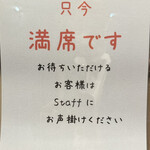 只今
満席です
お待ちいただける
お客様は
Staffに
お声掛けください